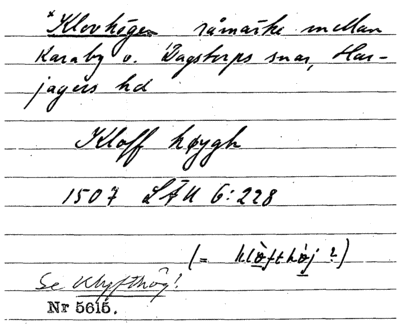 *Klovhögen råmärke mellan
Karaby o. Dagstorps snar, Har-
jagers hd
Kloff høygh
1507 LÄU 6:228
(= klöfthöj?)
Se Klyfthög!
Nr 5615.